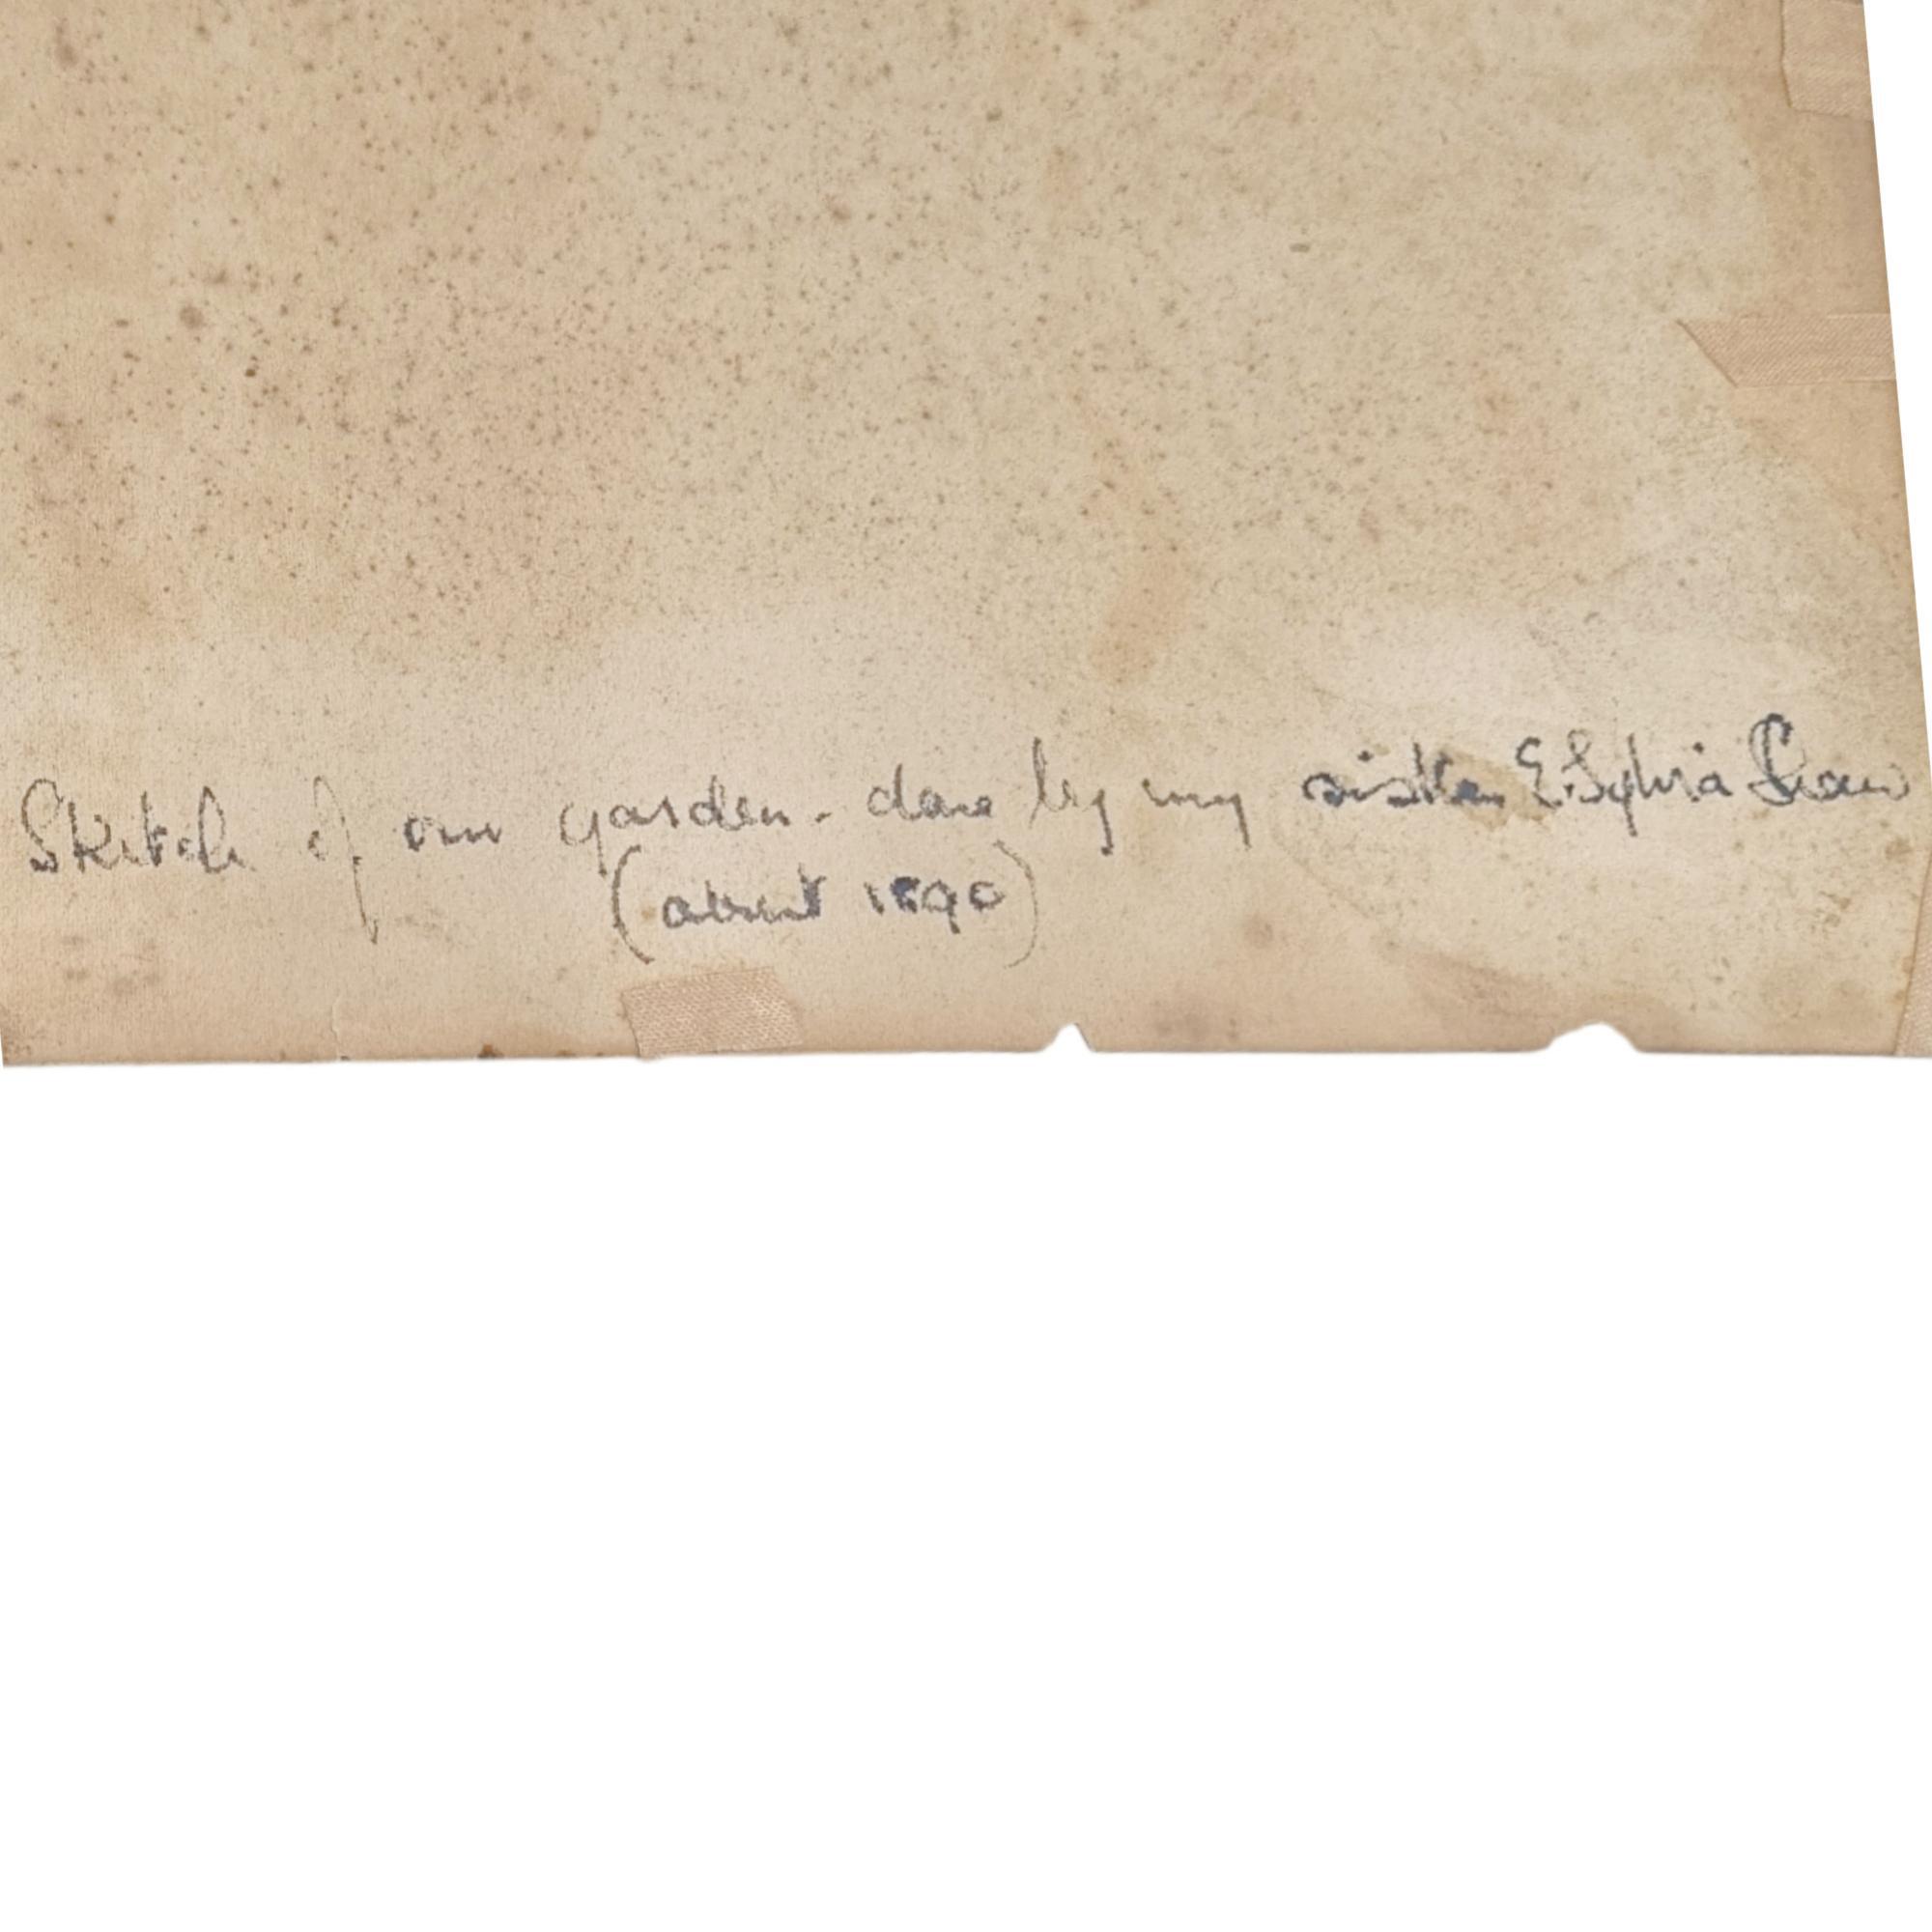 Sketch of our garden - done by my sister E. Sylvia Shaw
(about 1890)